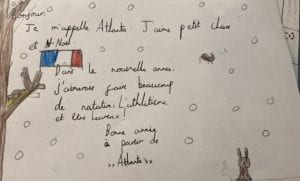 Bonjour.
Je m'appelle Atlanta. J'aime petit chien
et Noël.
Dans le nouvelle année.
J'aimerais faire beaucoup
de natation. L'athlétisme.
et être heureux!
Bonne année
à partir de
"Atlanta"